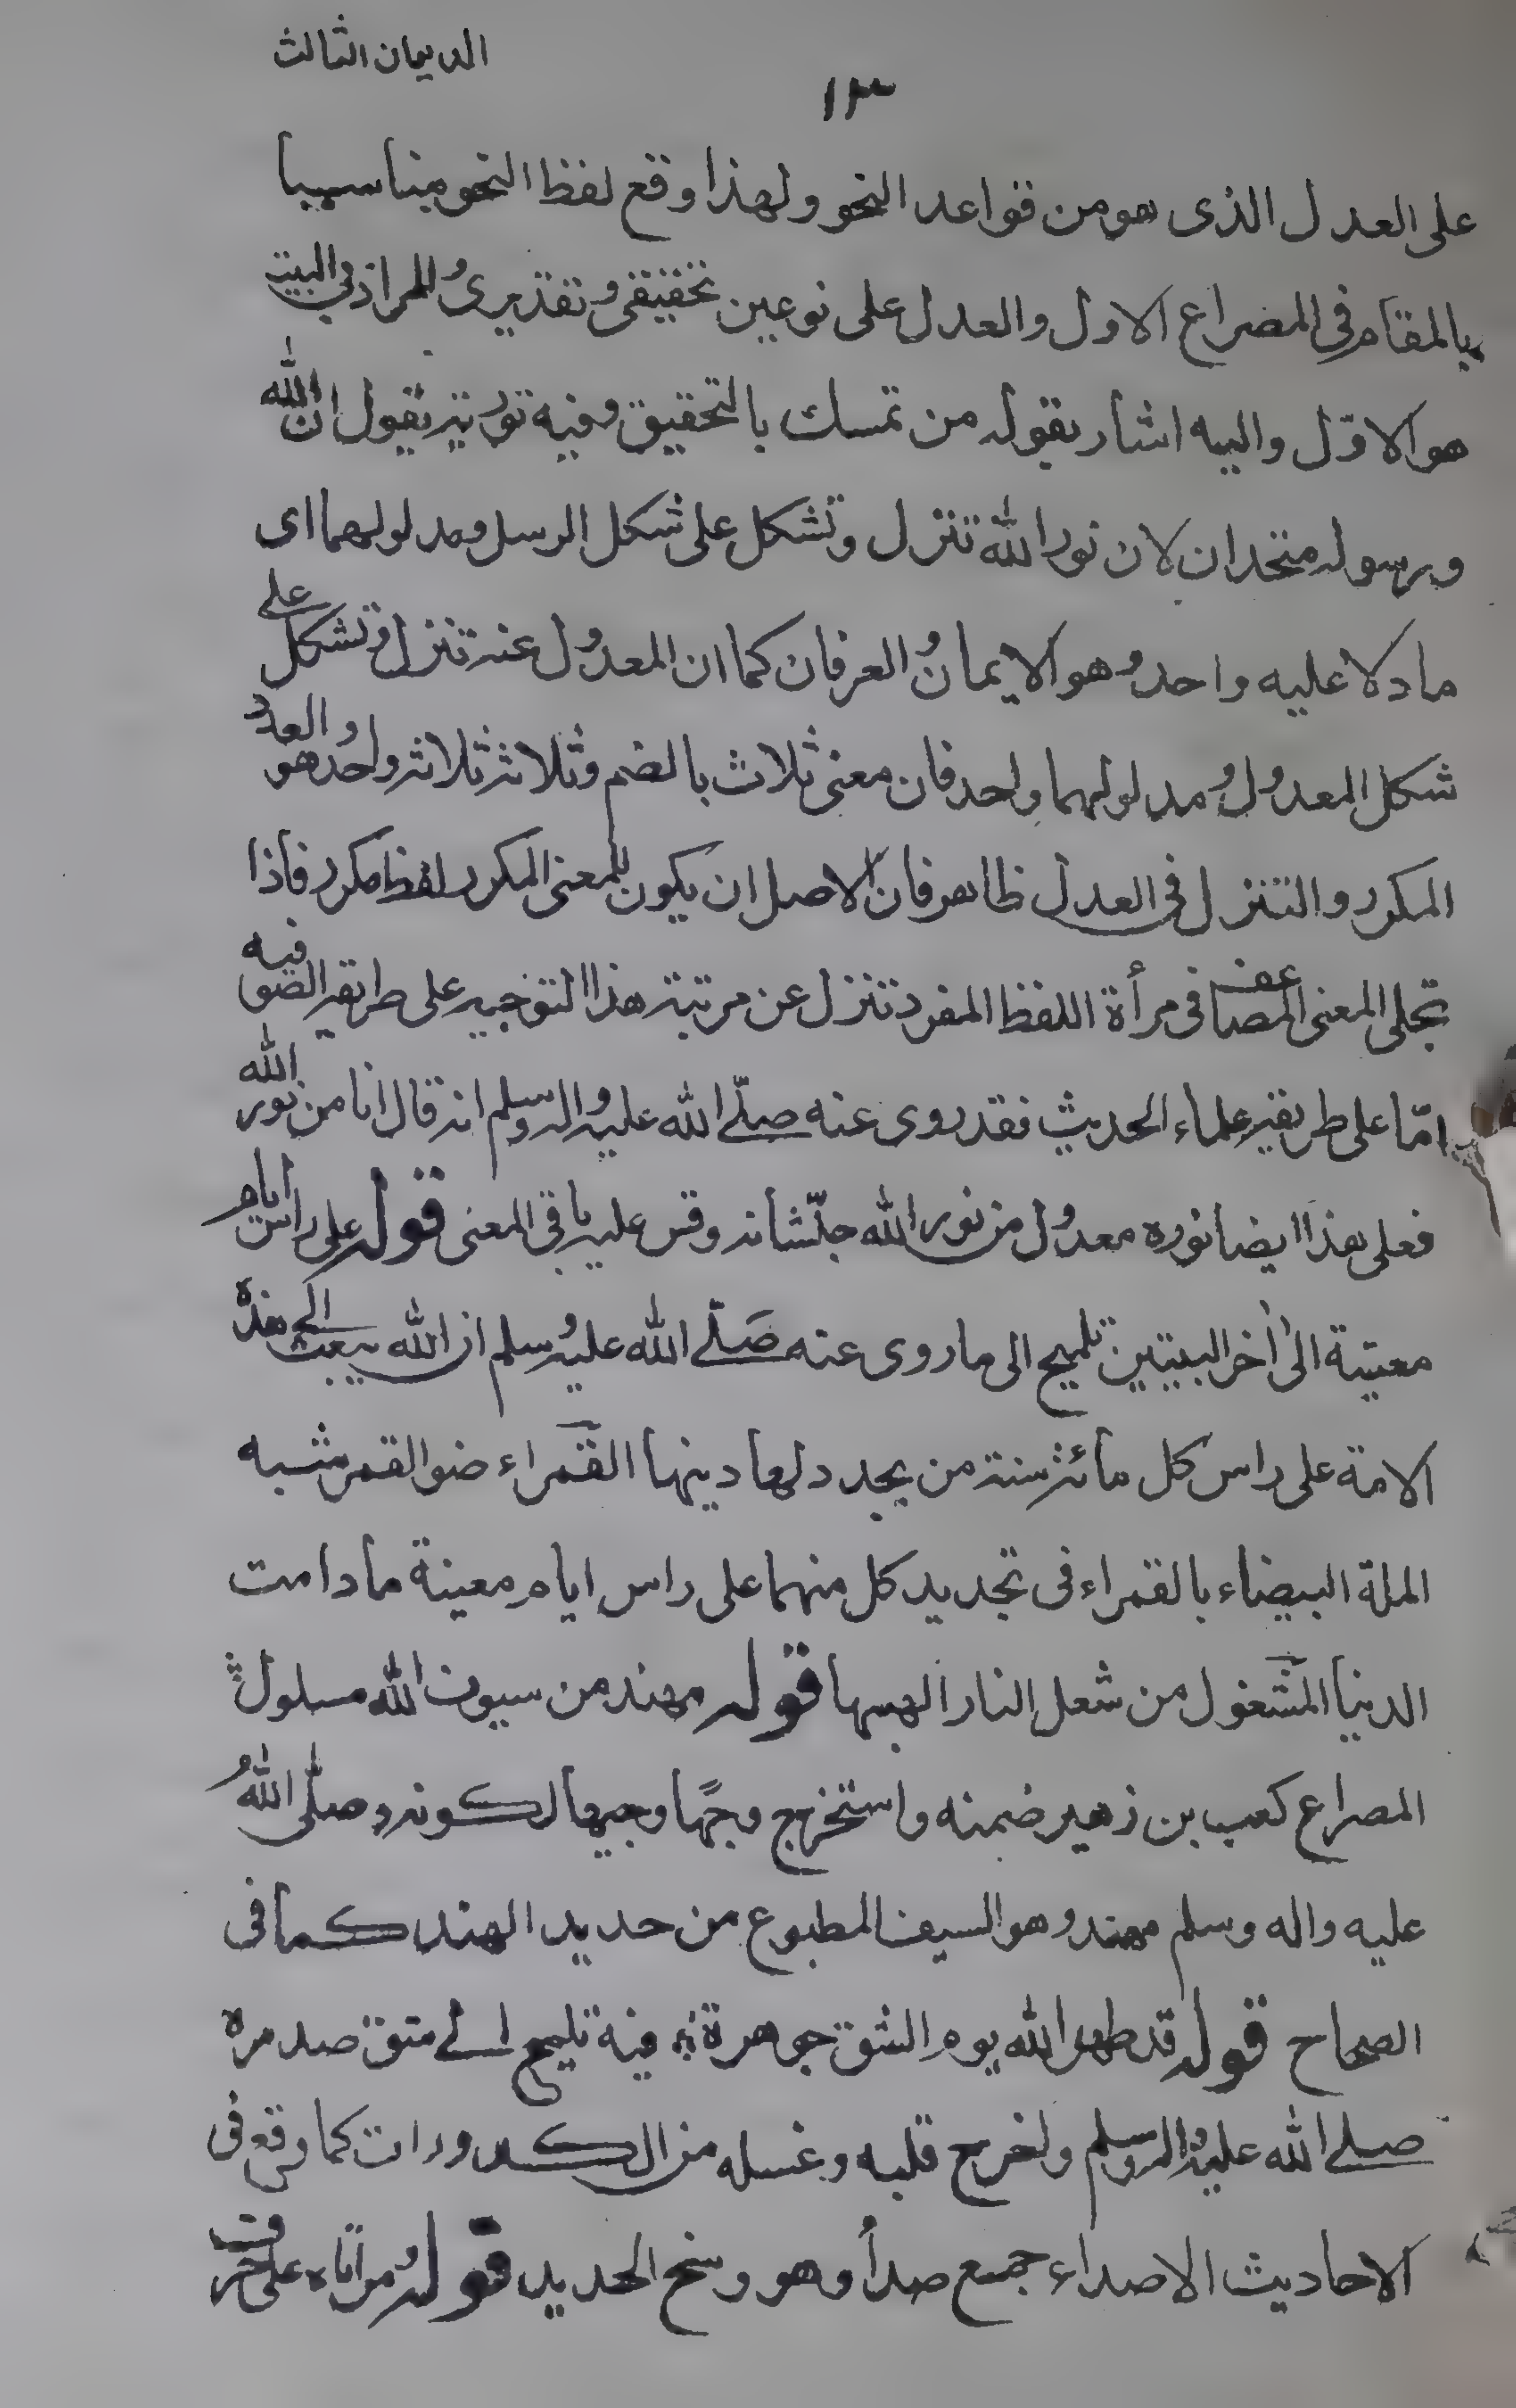 الديوان الثالث
١٣
على العدل الذى هو من قواعد النحو ولهذا وقع لفظ النحو مناسبا
بالمقام فى المصراع الاول والعدل على نوعين تحقيقى وتقديرى والمراد فى البيت
هو الاوّل واليه اشار بقوله من تمسك بالتحقيق وفيه تورية يقول ان الله
ورسوله متحدان لان نور الله تنزل وتشكل على شكل الرسل ومدلولهما اى
مادلا عليه واحد وهو الايمان والعرفان كما ان المعدول عنه تنزل وتشكل على
شكل المعدول ومدلولهما واحد فان معنى ثلاث بالضم وثلاثة ثلاثة واحد وهو العدد
المكرر والتنزل فى العدل ظاهر فان الاصل ان يكون للمعنى المكرر لفظ مكرر فاذا
تجلى المعنى المضاعف فى مرأة اللفظ المفرد تنزل عن مرتبته هذا التوجيه على طريقة الصوفيه
امّا على طريقة علماء الحديث فقد روى عنه صلّے الله عليه واله وسلم انه قال انا من نور الله
فعلى هذا ايضا نوره معدول من نور الله جلّ شانه وقس عليه باقى المعنى قوله على راس ايام
معينة الى أخر البيتين تلميح الى ما روى عنه صَلّے الله عليه وسلم ان الله يبعث الى هذه
الامة على راس كل مائة سنة من يجدد لها دينها القمراء ضو القمر شبه
الملة البيضاء بالقمراء فى تجديد كل منهما على راس ايام معينة مادامت
الدنيا المشغول من شعل النار الهبها قوله مهند من سيوف الله مسلول
المصراع كعب بن زهير ضمنه واستخرج وجهًا وجيها لكونه صلّى اللهُ
عليه واله وسلم مهند وهو السيف المطبوع من حديد الهند كما فى
الصحاح قوله قد طهر الله يوم الشق جوهرة فيه تليمح الے شق صدره
صلے الله عليه واله وسلم واخرج قلبه وغسله من الكدورات كما وقع فى
الاحاديث الاصداء جمع صدأ وهو وسخ الحديد قوله مرأتاه على حرف